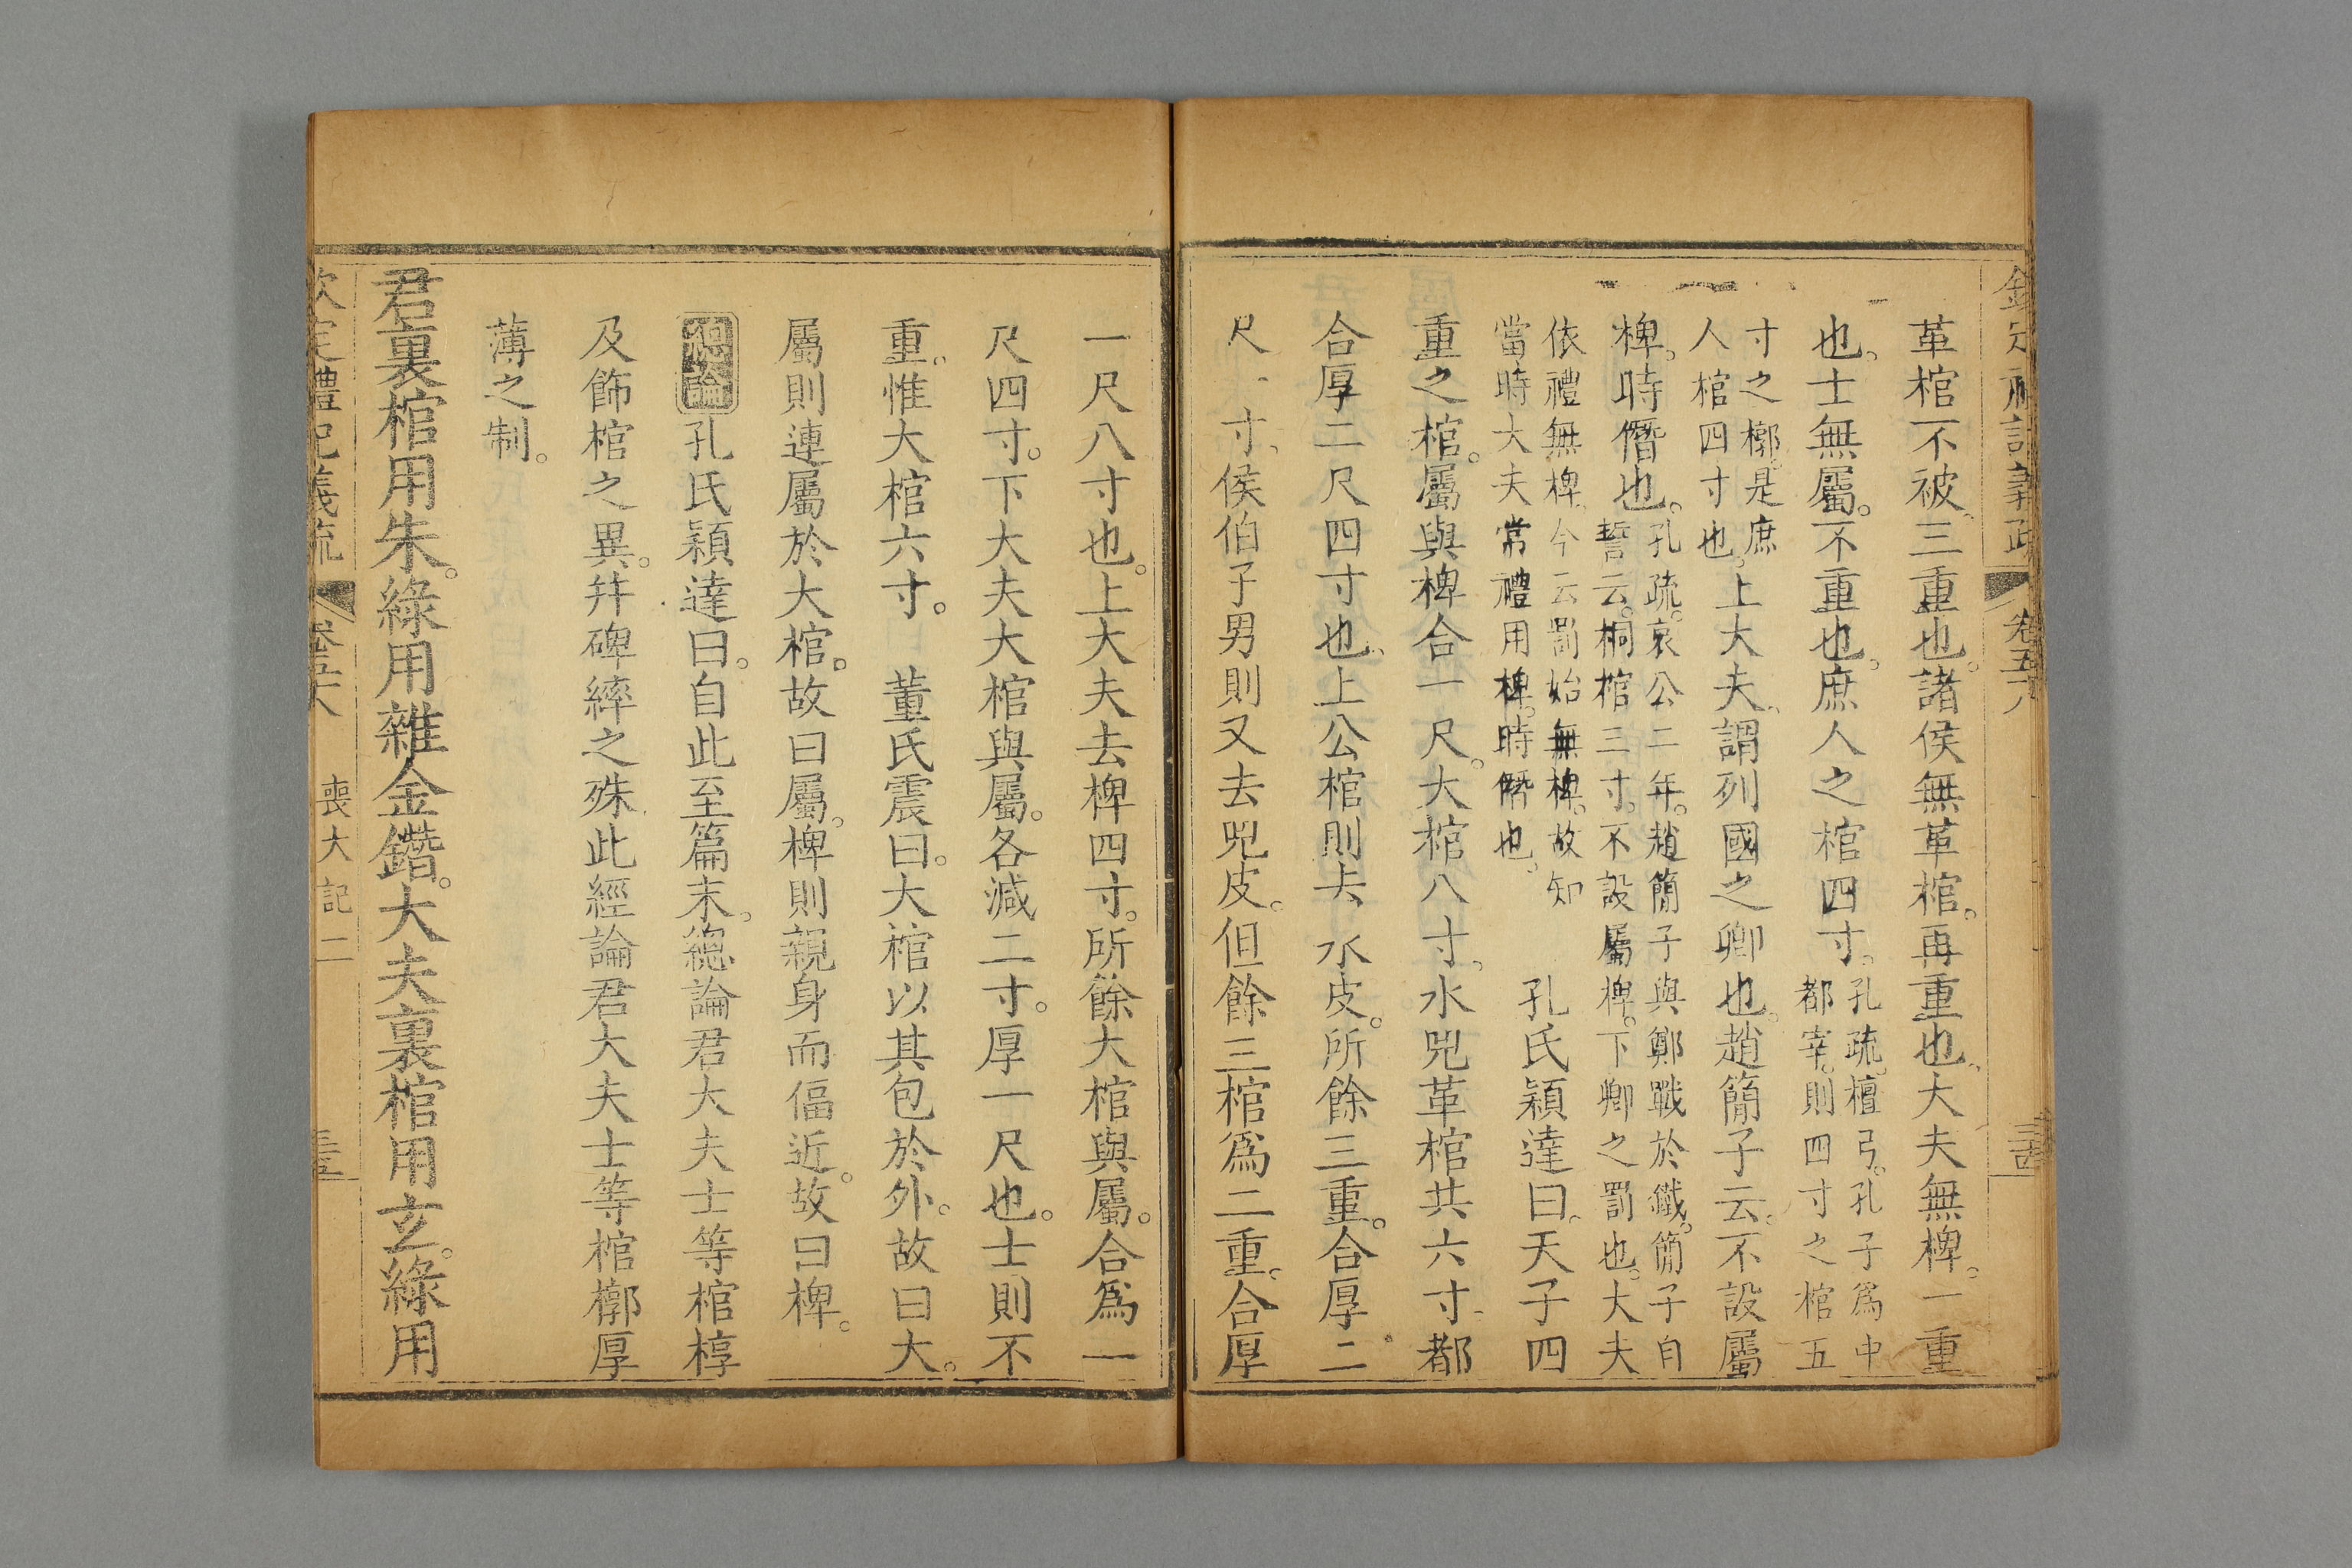 革棺不被三重也諸侯無革棺再重也大夫無椑一重
也士無屬不重也庶人之棺四寸
孔疏檀弓孔子為中
都宰則四寸之棺五
寸之槨是庶
人棺四寸也
上大夫謂列國之卿也趙簡子云不設屬
椑時僭也
孔疏哀公二年趙簡子與鄭戰於鐵簡子自
誓云桐棺三寸不設屬椑下卿之罰也大夫
依禮無椑今云罰始無椑故知
當時大夫常禮用椑時僭也
孔氏穎達曰天子四
重之棺屬與椑合一尺大棺八寸水兕革棺共六寸都
合厚二尺四寸也上公棺則去水皮所餘三重合厚二
尺一寸侯伯子男則又去兕皮但餘三棺為二重合厚
一尺八寸也上大夫去椑四寸所餘大棺與屬合為一
尺四寸下大夫大棺與屬各減二寸厚一尺也士則不
重惟大棺六寸 董氏震曰大棺以其包於外故曰大
屬則連屬於大棺故曰屬椑則親身而偪近故曰椑
總論孔氏穎達曰自此至篇末總論君大夫士等棺椁
及飾棺之異并碑繂之殊此經論君大夫士等棺槨厚
薄之制
君裏棺用朱綠用雜金鐕大夫裏棺用玄綠用
欽定禮記義疏 卷五十八 喪大記二 三十五